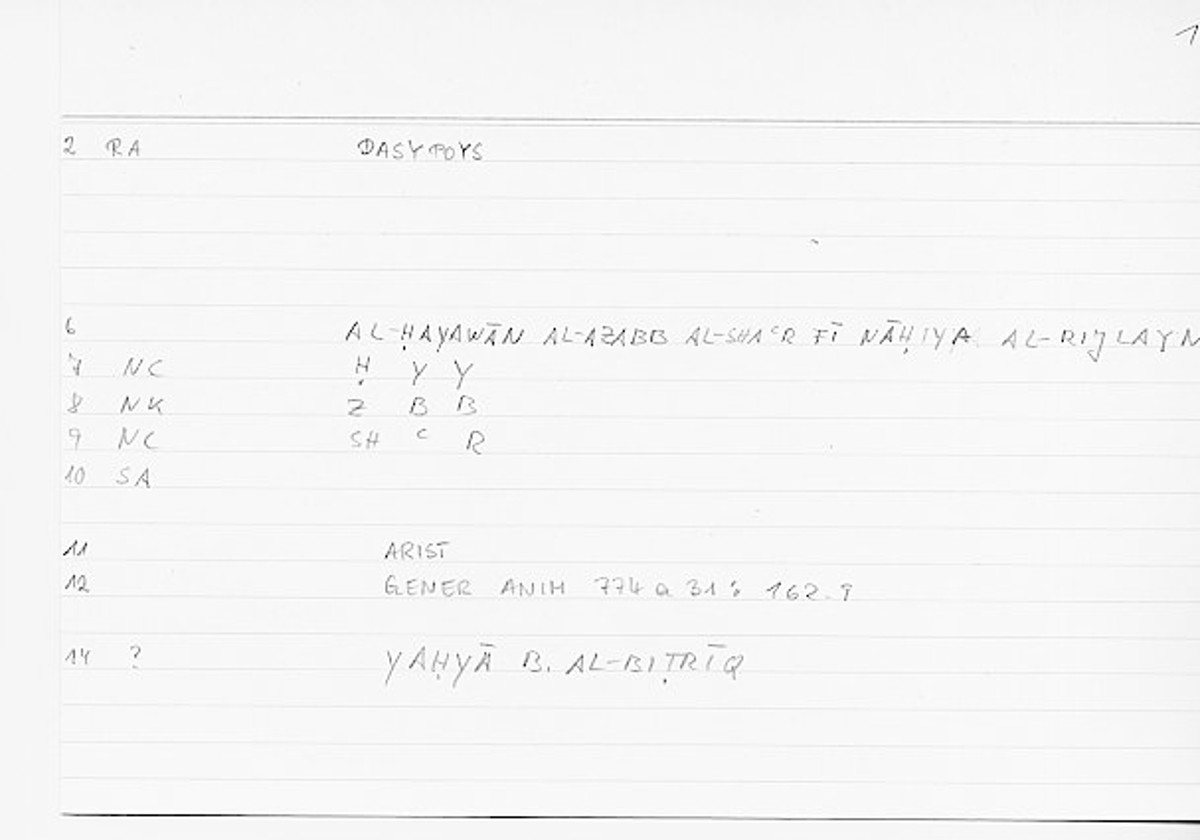 1
2 RA DASYPOYS
6 AL-ḤAYAWĀN AL-AZABB AL-SHAᶜR FĪ NĀḤIYA AL-RIJLAYN
7 NC Ḥ Y Y
8 NK Z B B
9 NC SH ᶜ R
10 SA
11 ARIST
12 GENER ANIM 774 a 31 : 162.
14 ? YAḤYĀ B. AL-BIṬRĪQ